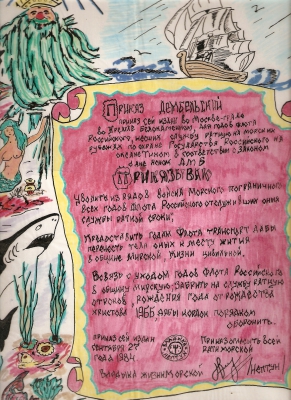 Приказ дембельский
приказ сей издан во Москве-граде
во Кремле Белокаменном, для годов флота
Российского, несших службу ратную на морских
рубежах по охране Государства Российского на
океане Тихом в соответствии с законом
Приказываю
Уволить из рядов войска Морского пограничного
всех годов флота Российского отслуживших оных
службы ратной сроки,
Предоставить годам Флота транспорт дабы
перенесть тела оных к месту жития
в общине Мирской, жизни цивильной,
В связи с уходом годов Флота Российского
в общину Мирскую, забрить на службу ратную
отроков, рождения года от рождества
Христова 1966, дабы кордон порядком
оборонить.
приказ сей издан
сентября 27
года 1984
Приказ огласить всей
рати морской
Владыка жизни морской
Нептун